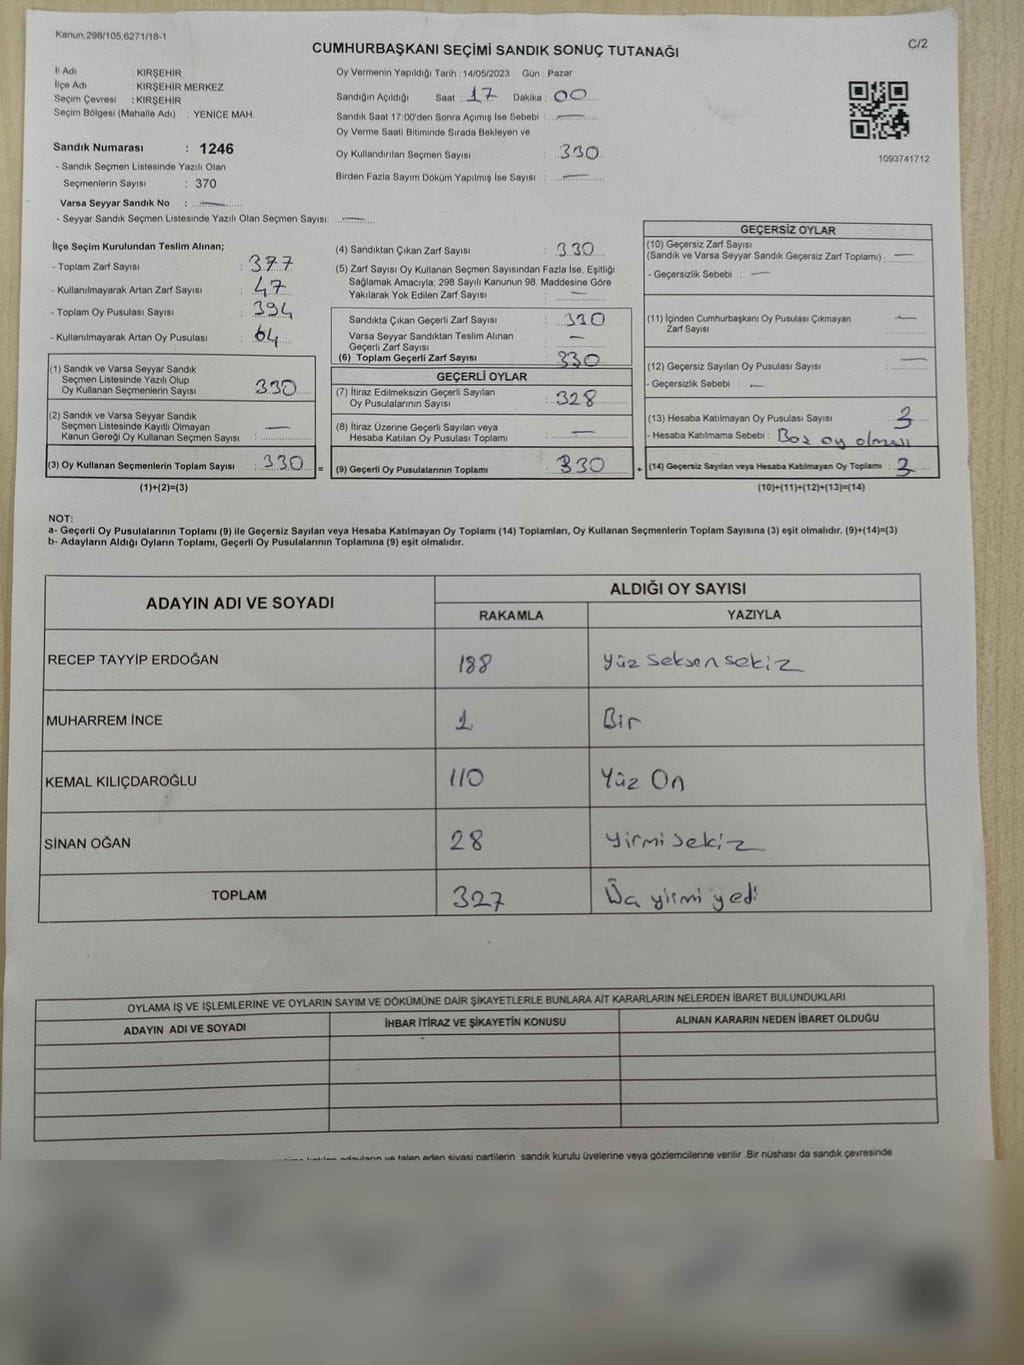 Kanun;298/105;6271/18-1
C/2
CUMHURBAŞKANI SEÇİMİ SANDIK SONUÇ TUTANAĞI
İl Adı : KIRŞEHİR
İlçe Adı : KIRŞEHİR MERKEZ
Seçim Çevresi : KIRŞEHİR
Seçim Bölgesi (Mahalle Adı) : YENİCE MAH.
Sandık Numarası : 1246
- Sandık Seçmen Listesinde Yazılı Olan
Seçmenlerin Sayısı : 370
Varsa Seyyar Sandık No : —
- Seyyar Sandık Seçmen Listesinde Yazılı Olan Seçmen Sayısı: —
Oy Vermenin Yapıldığı Tarih : 14/05/2023 Gün : Pazar
Sandığın Açıldığı Saat : 17 Dakika : 00
Sandık Saat 17:00'den Sonra Açımış İse Sebebi : —
Oy Verme Saati Bitiminde Sırada Bekleyen ve
Oy Kullandırılan Seçmen Sayısı : 330
Birden Fazla Sayım Döküm Yapılmış İse Sayısı : —
1093741712
İlçe Seçim Kurulundan Teslim Alınan;
- Toplam Zarf Sayısı : 377
- Kullanılmayarak Artan Zarf Sayısı : 47
- Toplam Oy Pusulası Sayısı : 394
- Kullanılmayarak Artan Oy Pusulası : 64
(1) Sandık ve Varsa Seyyar Sandık
Seçmen Listesinde Yazılı Olup
Oy Kullanan Seçmenlerin Sayısı : 330
(2) Sandık ve Varsa Seyyar Sandık
Seçmen Listesinde Kayıtlı Olmayan
Kanun Gereği Oy Kullanan Seçmen Sayısı : —
(3) Oy Kullanan Seçmenlerin Toplam Sayısı : 330 =
(1)+(2)=(3)
(4) Sandıktan Çıkan Zarf Sayısı : 330
(5) Zarf Sayısı Oy Kullanan Seçmen Sayısından Fazla İse, Eşitliği
Sağlamak Amacıyla; 298 Sayılı Kanunun 98. Maddesine Göre
Yakılarak Yok Edilen Zarf Sayısı : —
Sandıkta Çıkan Geçerli Zarf Sayısı : 330
Varsa Seyyar Sandıktan Teslim Alınan
Geçerli Zarf Sayısı : —
(6) Toplam Geçerli Zarf Sayısı : 330
GEÇERLİ OYLAR
(7) İtiraz Edilmeksizin Geçerli Sayılan
Oy Pusulalarının Sayısı : 328
(8) İtiraz Üzerine Geçerli Sayılan veya
Hesaba Katılan Oy Pusulası Toplamı : —
(9) Geçerli Oy Pusulalarının Toplamı : 330 +
GEÇERSİZ OYLAR
(10) Geçersiz Zarf Sayısı
(Sandık ve Varsa Seyyar Sandık Geçersiz Zarf Toplamı) : —
- Geçersizlik Sebebi : —
(11) İçinden Cumhurbaşkanı Oy Pusulası Çıkmayan
Zarf Sayısı : —
(12) Geçersiz Sayılan Oy Pusulası Sayısı : —
- Geçersizlik Sebebi : —
(13) Hesaba Katılmayan Oy Pusulası Sayısı : 3
- Hesaba Katılmama Sebebi : Boş oy olması
(14) Geçersiz Sayılan veya Hesaba Katılmayan Oy Toplamı : 3
(10)+(11)+(12)+(13)=(14)
NOT:
a- Geçerli Oy Pusulalarının Toplamı (9) ile Geçersiz Sayılan veya Hesaba Katılmayan Oy Toplamı (14) Toplamları, Oy Kullanan Seçmenlerin Toplam Sayısına (3) eşit olmalıdır. (9)+(14)=(3)
b- Adayların Aldığı Oyların Toplamı, Geçerli Oy Pusulalarının Toplamına (9) eşit olmalıdır.
ADAYIN ADI VE SOYADI
ALDIĞI OY SAYISI
RAKAMLA YAZIYLA
RECEP TAYYİP ERDOĞAN 188 Yüz Seksen sekiz
MUHARREM İNCE 1 Bir
KEMAL KILIÇDAROĞLU 110 Yüz On
SİNAN OĞAN 28 Yirmi sekiz
TOPLAM 327 yirmi yedi
OYLAMA İŞ VE İŞLEMLERİNE VE OYLARIN SAYIM VE DÖKÜMÜNE DAİR ŞİKAYETLERLE BUNLARA AİT KARARLARIN NELERDEN İBARET BULUNDUKLARI
ADAYIN ADI VE SOYADI İHBAR İTİRAZ VE ŞİKAYETİN KONUSU ALINAN KARARIN NEDEN İBARET OLDUĞU
adayların ve talep eden siyasi partilerin sandık kurulu üyelerine veya gözlemcilerine verilir .Bir nüshası da sandık çevresinde